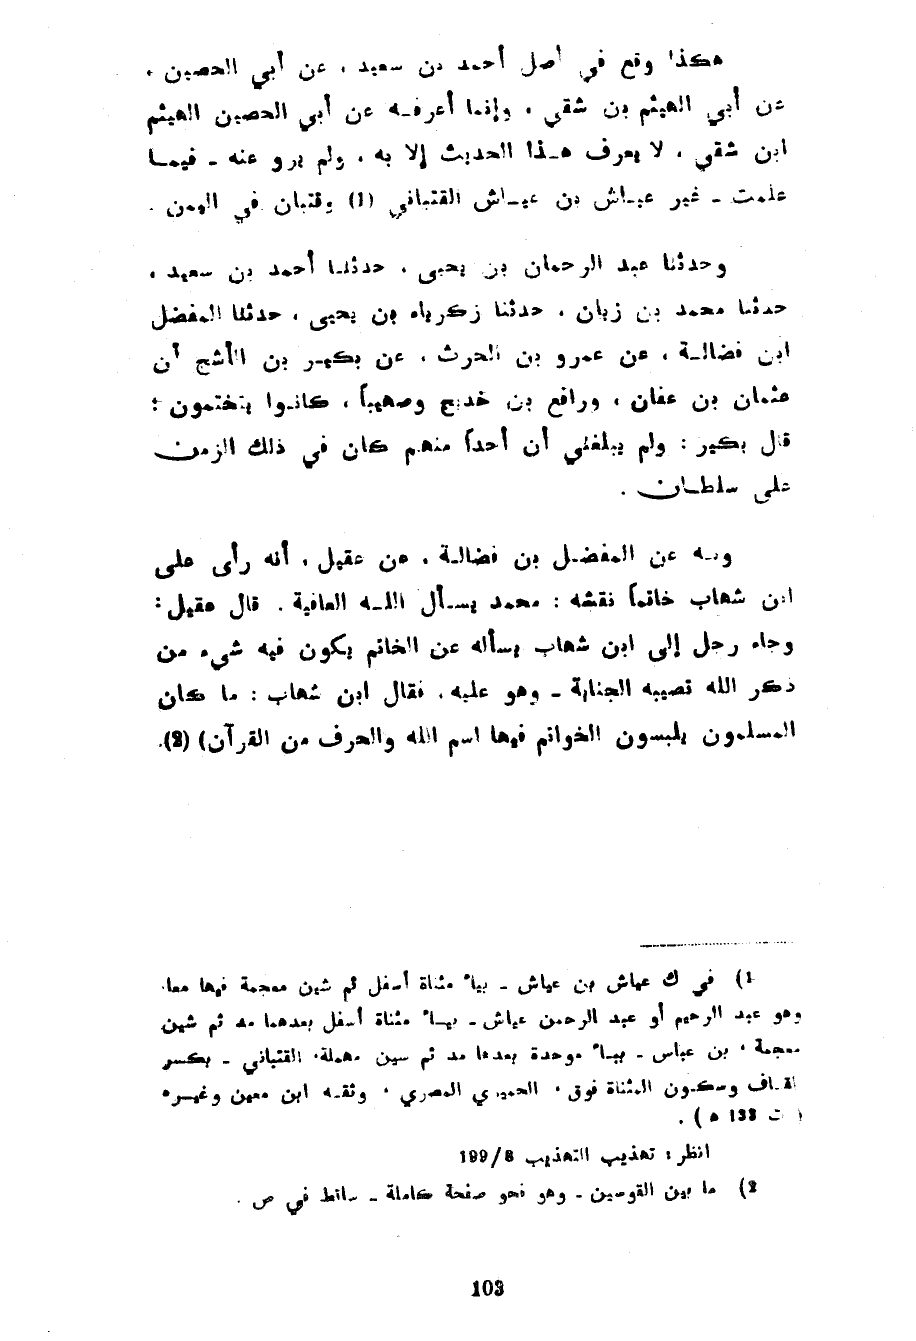 هكذا وقع في أصل أحمد بن سعيد ، عن أبي الحصين ،
عن أبي الهيثم بن شقي ، وإنما أعرفه عن أبي الحصين الهيثم
ابن شقي ، لا يعرف هذا الحديث إلا به ، ولم يرو عنه - فيما
علمت - غير عياش بن عياش القتباني (1) وقتبان في اليمن .
وحدثنا عبد الرحمان بن يحيى ، حدثنا أحمد بن سعيد ،
حدثنا محمد بن زبان ، حدثنا زكرياء بن يحيى ، حدثنا المفضل
ابن فضالة ، عن عمرو بن الحرث ، عن بكير بن الأشج أن
عثمان بن عفان ، ورافع بن خديج وصهيباً ، كانوا يتختمون ؛
قال بكير : ولم يبلغني أن أحداً منهم كان في ذلك الزمن
على سلطان .
وبه عن المفضل بن فضالة ، عن عقيل ، أنه رأى على
ابن شهاب خاتماً نقشه : محمد يسأل الله العافية . قال عقيل :
وجاء رجل إلى ابن شهاب يسأله عن الخاتم يكون فيه شيء من
ذكر الله تصيبه الجنابة - وهو عليه ، فقال ابن شهاب : ما كان
المسلمون يلبسون الخواتم فيها اسم الله والحرف من القرآن) (2).
1) في ك عياش بن عياش - بياء مثناة أسفل ثم شين معجمة فيها معا،
وهو عبد الرحيم أو عبد الرحمن عياش - بياء مثناة أسفل بعدهما مد ثم شين
معجمة ، بن عباس - بباء موحدة بعدها مد ثم سين مهملة، القتباني - بكسر
القاف وسكون المثناة فوق ، الحميري المصري ، وثقه ابن معين وغيره
( ت 133 ه ) .
انظر : تهذيب التهذيب 8/199
2) ما بين القوسين - وهو نحو صفحة كاملة - ساقط في ص .
103